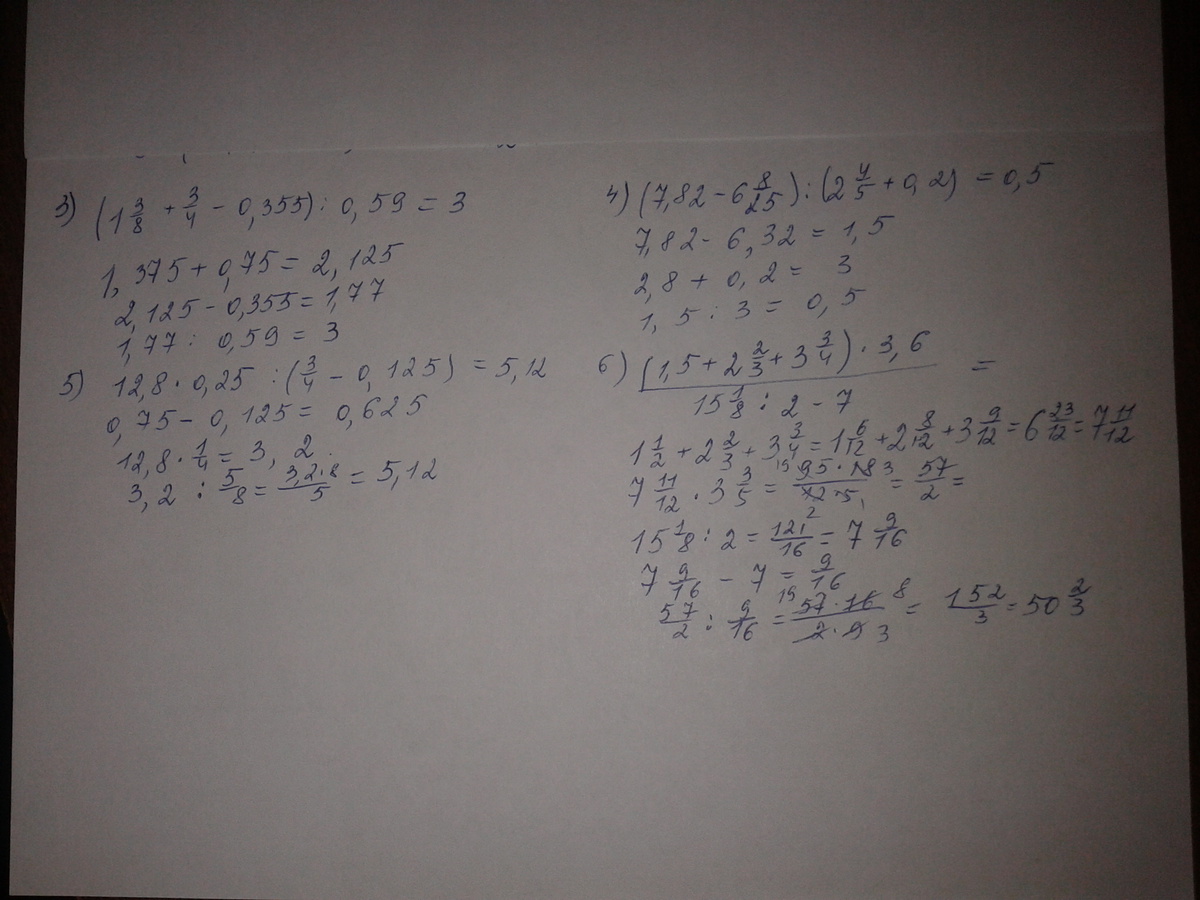 3) (1 3/8 + 3/4 - 0,355) : 0,59 = 3
1,375 + 0,75 = 2,125
2,125 - 0,355 = 1,77
1,77 : 0,59 = 3
5) 12,8 · 0,25 : (3/4 - 0,125) = 5,12
0,75 - 0,125 = 0,625
12,8 · 1/4 = 3,2
3,2 : 5/8 = 3,2·8/5 = 5,12
4) (7,82 - 6 8/25) : (2 4/5 + 0,2) = 0,5
7,82 - 6,32 = 1,5
2,8 + 0,2 = 3
1,5 : 3 = 0,5
6) (1,5 + 2 2/3 + 3 3/4) · 3,6 =
15 1/8 : 2 - 7
1 1/2 + 2 2/3 + 3 3/4 = 1 6/12 + 2 8/12 + 3 9/12 = 6 23/12 = 7 11/12
7 11/12 · 3 3/5 = 19 95·18 3 / 12·5 2 1 = 57/2 =
15 1/8 : 2 = 121/16 = 7 9/16
7 9/16 - 7 = 9/16
57/2 : 9/16 = 19 57·16 8 / 2·9 3 = 152/3 = 50 2/3